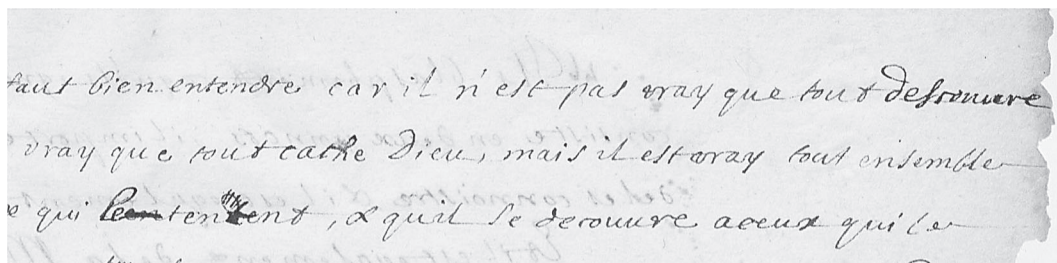 faut bien entendre car il n'est pas vray que tout descouure
vray que tout cathe Dieu, mais il est vray tout ensemble
qui tentent, & quil se decouure aceux qui le